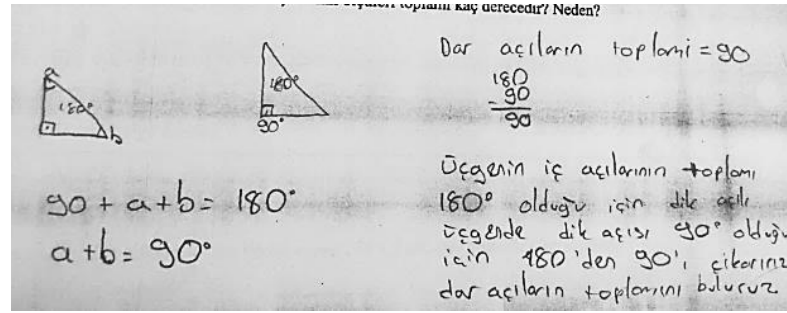 toplamı kaç derecedir? Neden?
a
180°
b
180°
90°
90 + a + b = 180°
a + b = 90°
Dar açıların toplami = 90
180
90
90
Üçgenin iç açılarının toplamı
180° olduğu için dik açılı
üçgende dik açısı 90° olduğu
için 180'den 90'ı çıkarırız
dar açıların toplamını buluruz